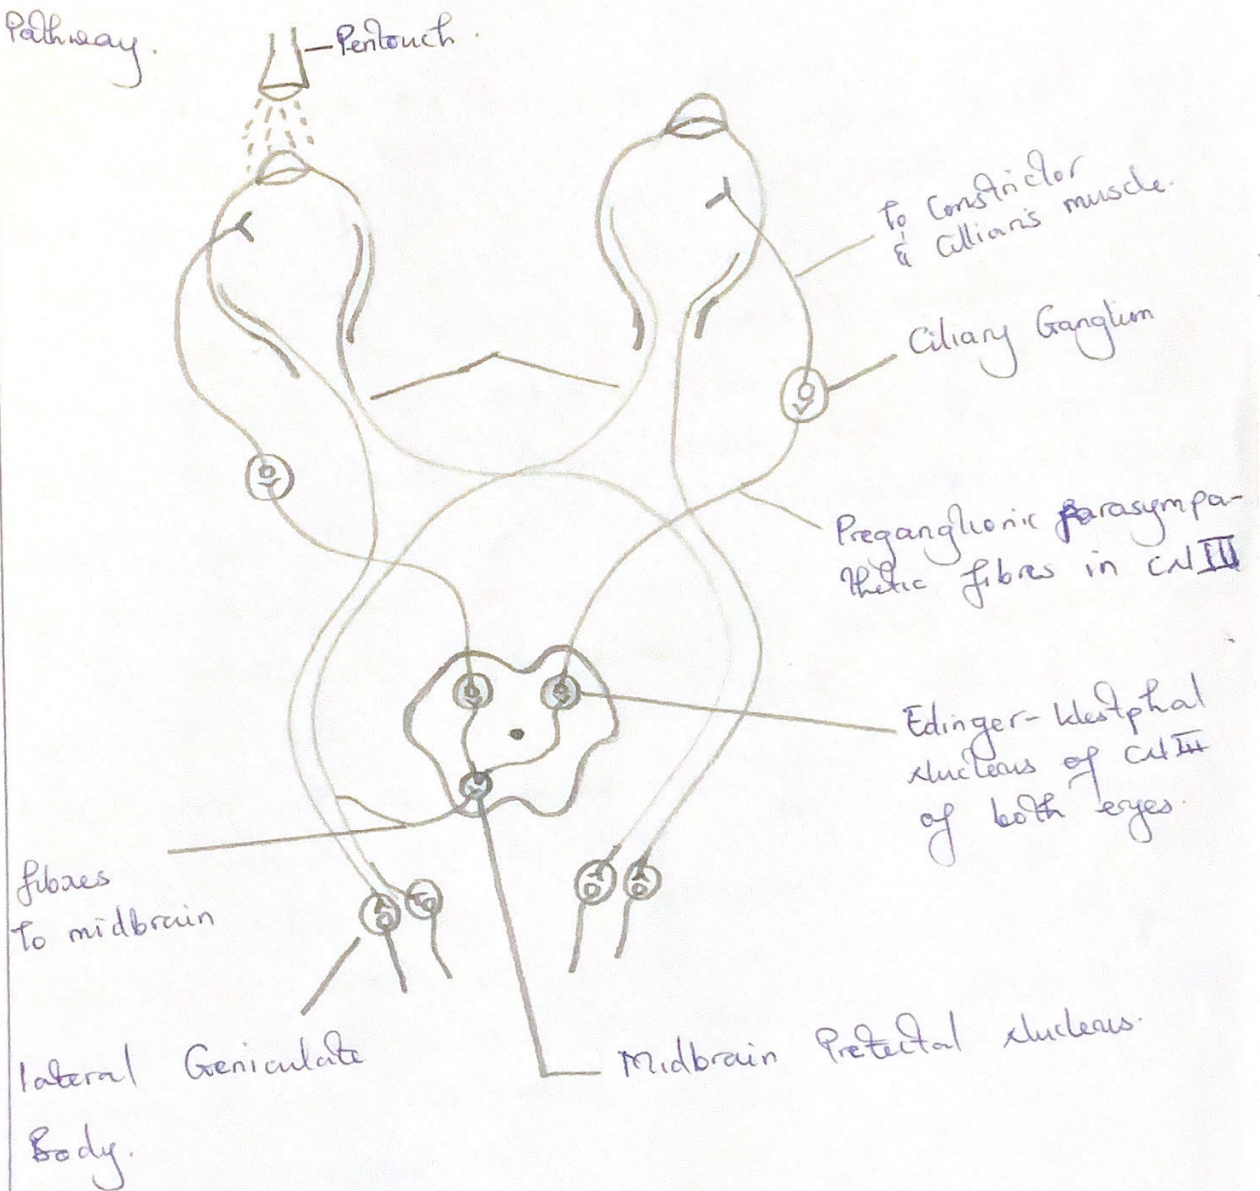 Pathway.
Pentouch.
To Constrictor
& Cilliaris muscle.
Ciliary Ganglion
Preganglionic Parasympa-
thetic fibres in CN III
Edinger-Westphal
Nucleus of CN III
of both eyes.
fibres
to midbrain
lateral Geniculate
Body.
Midbrain Pretectal Nucleus.